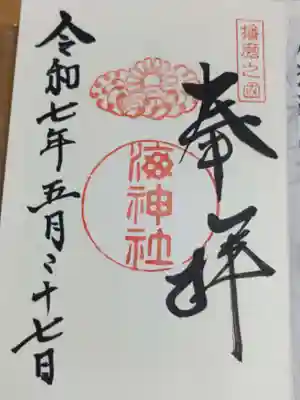 播磨之國
奉拝
海神社
令和七年五月二十七日